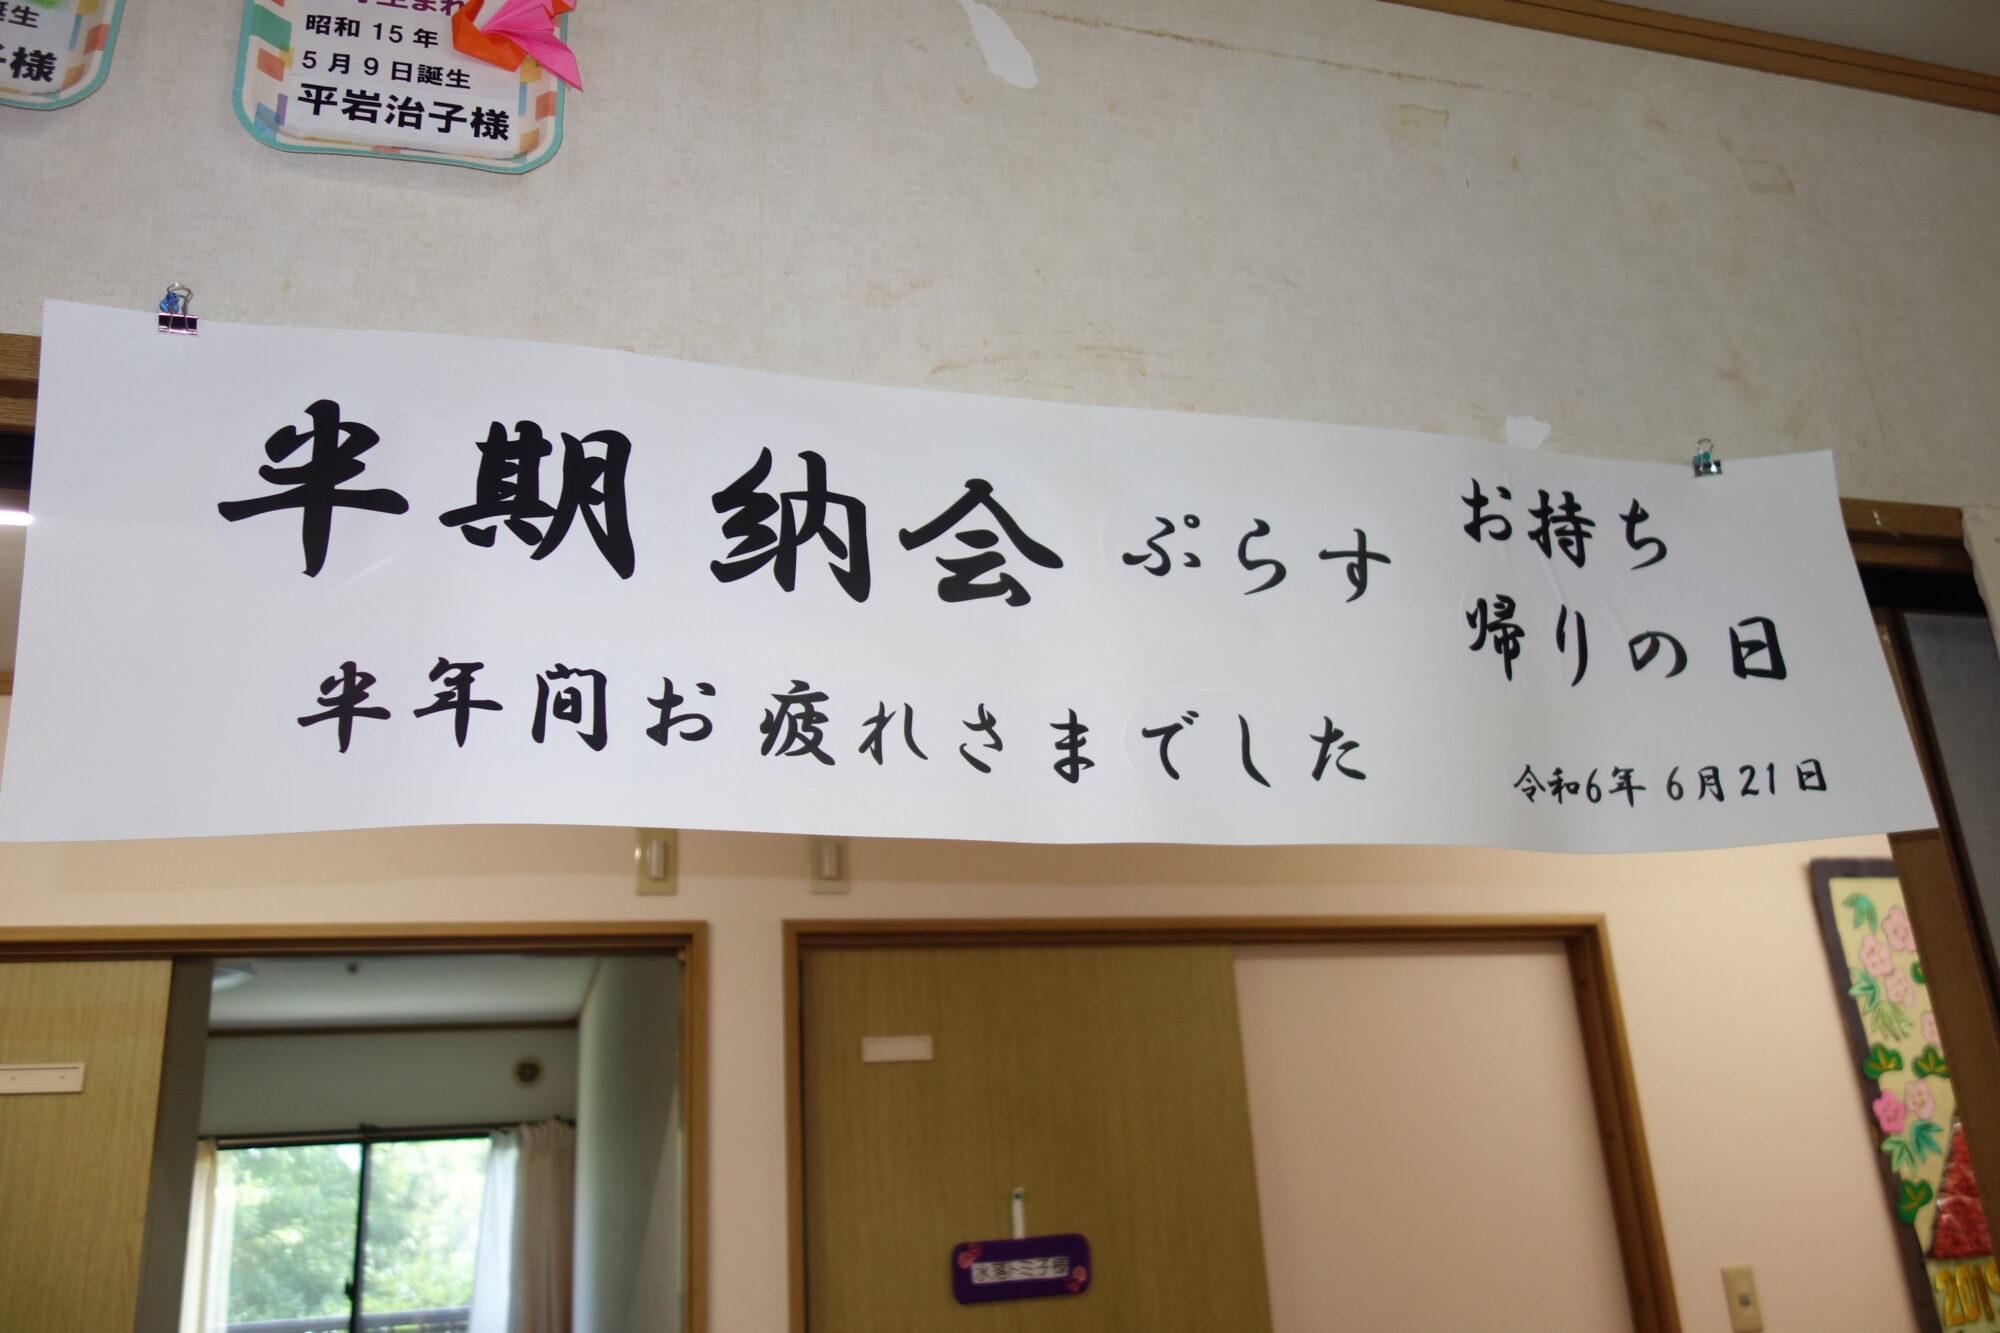 誕生
子様
生まれ
昭和 15 年
5 月 9 日誕生
平岩治子様
半期納会ぷらす
お持ち
帰りの日
半年間お疲れさまでした
令和6年 6月21日
水落トミ子様
2019